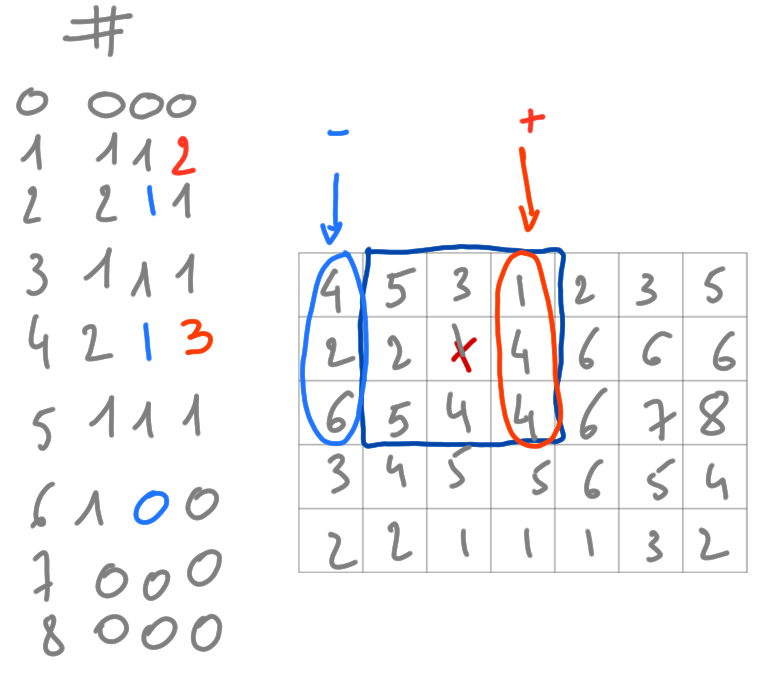 #
0 0 0 0
1 1 1 2
2 2 1 1
3 1 1 1
4 2 1 3
5 1 1 1
6 1 0 0
7 0 0 0
8 0 0 0
- +
4 5 3 1 2 3 5
2 2 x 4 6 6 6
6 5 4 4 6 7 8
3 4 5 5 6 5 4
2 2 1 1 1 3 2